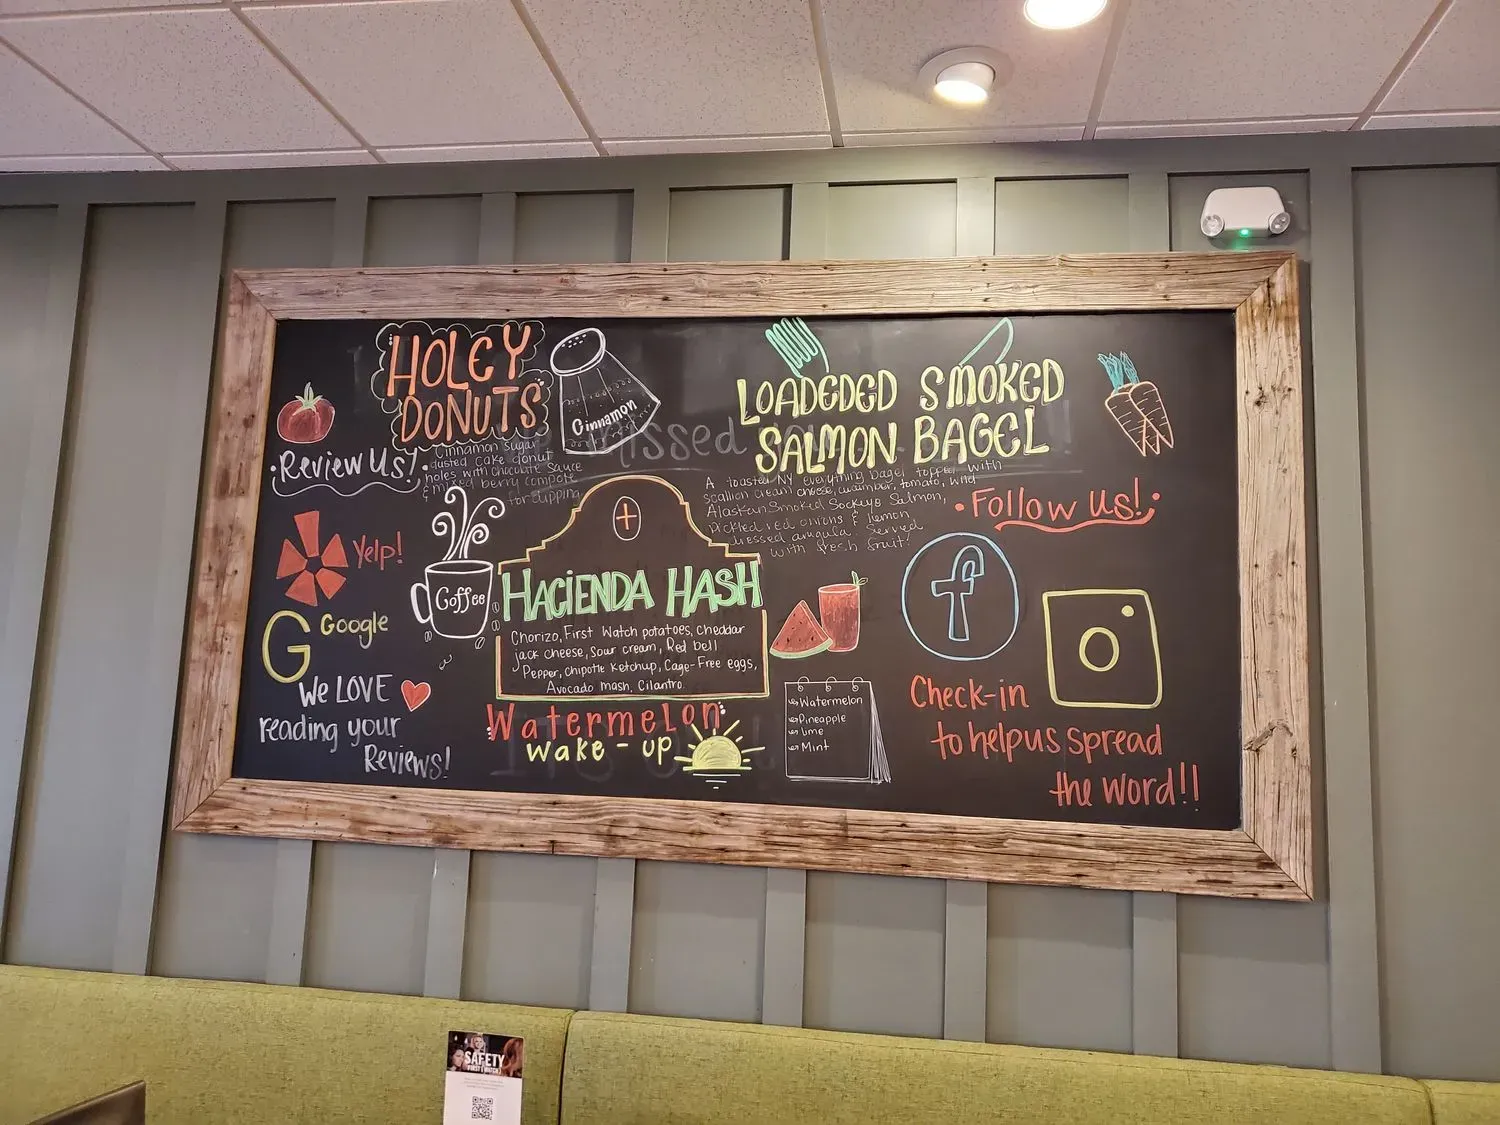 HOLEY
DONUTS
Cinnamon
Cinnamon sugar
dusted cake donut
holes with chocolate sauce
& mixed berry compote
for dipping
LOADEDED SMOKED
SALMON BAGEL
A toasted NY everything bagel topped with
scallion cream cheese, cucumber, tomato, wild
Alaskan Smoked Sockeye Salmon,
pickled red onions & lemon
dressed arugula. Served
with fresh fruit!
Review Us!
Yelp!
G Google
We LOVE
reading your
Reviews!
Coffee
HACIENDA HASH
Chorizo, First Watch potatoes, cheddar
jack cheese, sour cream, Red bell
Pepper, chipotle ketchup, Cage-Free eggs,
Avocado mash, Cilantro.
Watermelon
wake-up
Watermelon
Pineapple
Lime
Mint
Follow us!
f
Check-in
to help us spread
the word!!
missed
SAFETY
FIRST WATCH